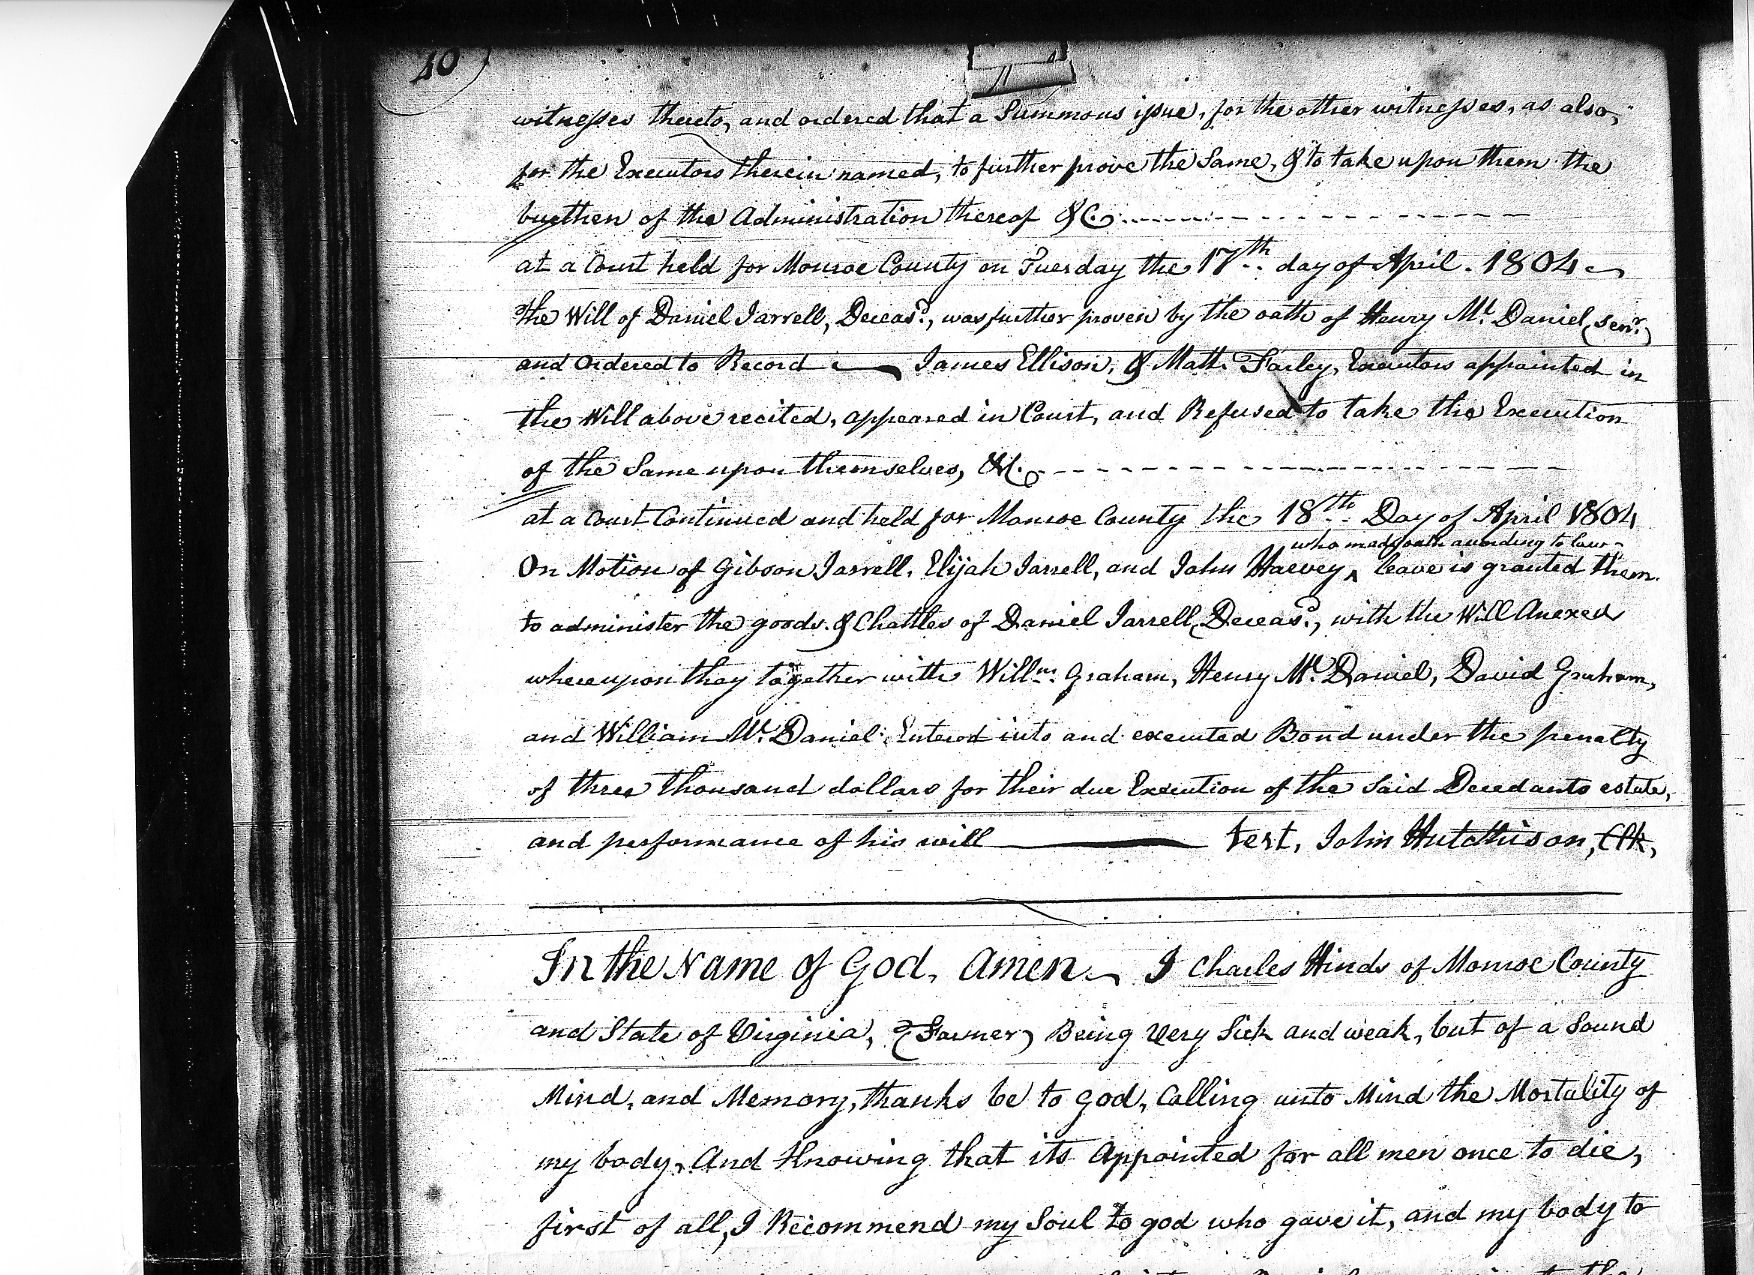 20
witnesses thereto, and ordered that a Summons issue, for the other witnesses, as also,
for the Executors therein named, to further prove the Same, & to take upon them the
burthen of the Administration thereof &C.
at a Court held for Monroe County on Tuesday the 17th day of April. 1804
the Will of Daniel Jarrell, Deceasd., was further proven by the oath of Henry Mc Daniel (Senr.)
and Ordered to Record James Ellison, & Matt. Farley, Executors appointed in
the Will above recited, appeared in Court, and Refused to take the Execution
of the Same upon themselves, &C.
at a Court Continued and held for Monroe County the 18th Day of April 1804
who made oath according to law
On Motion of Gibson Jarrell, Elijah Jarrell, and John Harvey ^ leave is granted them
to administer the goods. & Chattles of Daniel Jarrell, Deceasd., with the Will Anexed
whereupon they together with Willm. Graham, Henry Mc Daniel, David Graham,
and William Mc Daniel Entered into and executed Bond under the penalty
of three thousand dollars for their due Execution of the Said Decedants estate,
and performance of his will Test, John Hutchison, Clk,
In the Name of God, Amen. I Charles Hinds of Monroe County
and State of Virginia, (Farmer) Being Very Sick and weak, but of a Sound
Mind, and Memory, thanks be to god, Calling unto Mind the Mortality of
my body, And Knowing that its Appointed for all men once to die,
first of all, I Recommend my Soul to god who gave it, and my body to